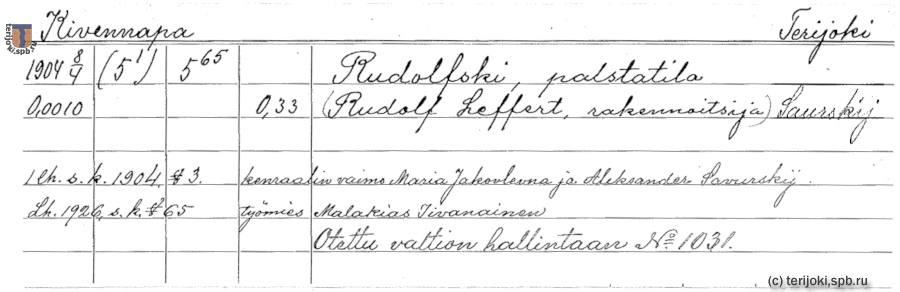 Kivennapa Terijoki
1904 8/4 (5¹) 5⁶⁵ Rudolfski, palstatila
0,0010 0,33 (Rudolf Leffert, rakennoitsija) Saurskij
1 lh. s. k. 1904, § 3. kenraalin vaimo Maria Jakovlevna ja Aleksander Savurskij.
Lh. 1926, s. k. § 65 työmies Malakias Iivanainen
Otettu valtion hallintaan № 1031.
terijoki.spb.ru
(c) terijoki.spb.ru